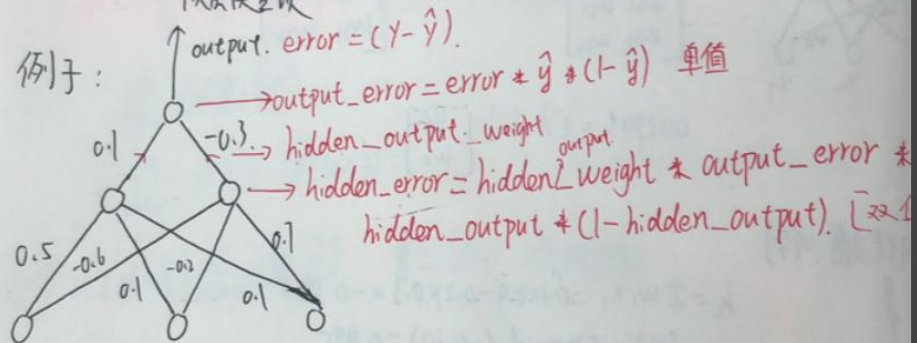 output. error = (y-ŷ).
例子:
output_error = error * ŷ * (1-ŷ) 单值
0.1
-0.3
hidden_output_weight
output
hidden_error = hidden_weight * output_error *
hidden_output * (1-hidden_output). [双
0.5
-0.6
0.1
-0.2
0.1
0.7